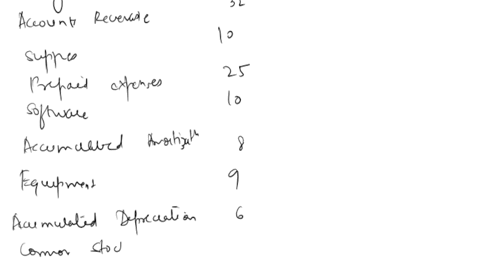 32
Account Receivable
10
Supplies
Prepaid expenses 25
Software 10
Accumulated Amortizatn 8
Equipment 9
Accumulated Depreciation 6
Common Stoc